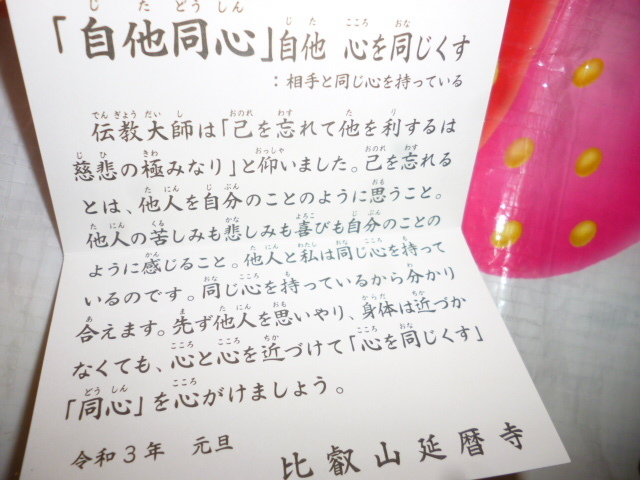 「自他同心」自他 心を同じくす
：相手と同じ心を持っている
伝教大師は「己を忘れて他を利するは
慈悲の極みなり」と仰いました。己を忘れる
とは、他人を自分のことのように思うこと。
他人の苦しみも悲しみも喜びも自分のことの
ように感じること。他人と私は同じ心を持って
いるのです。同じ心を持っているから分かり
合えます。先ず他人を思いやり、身体は近づか
なくても、心と心を近づけて「心を同じくす」
「同心」を心がけましょう。
令和3年 元旦
比叡山延暦寺